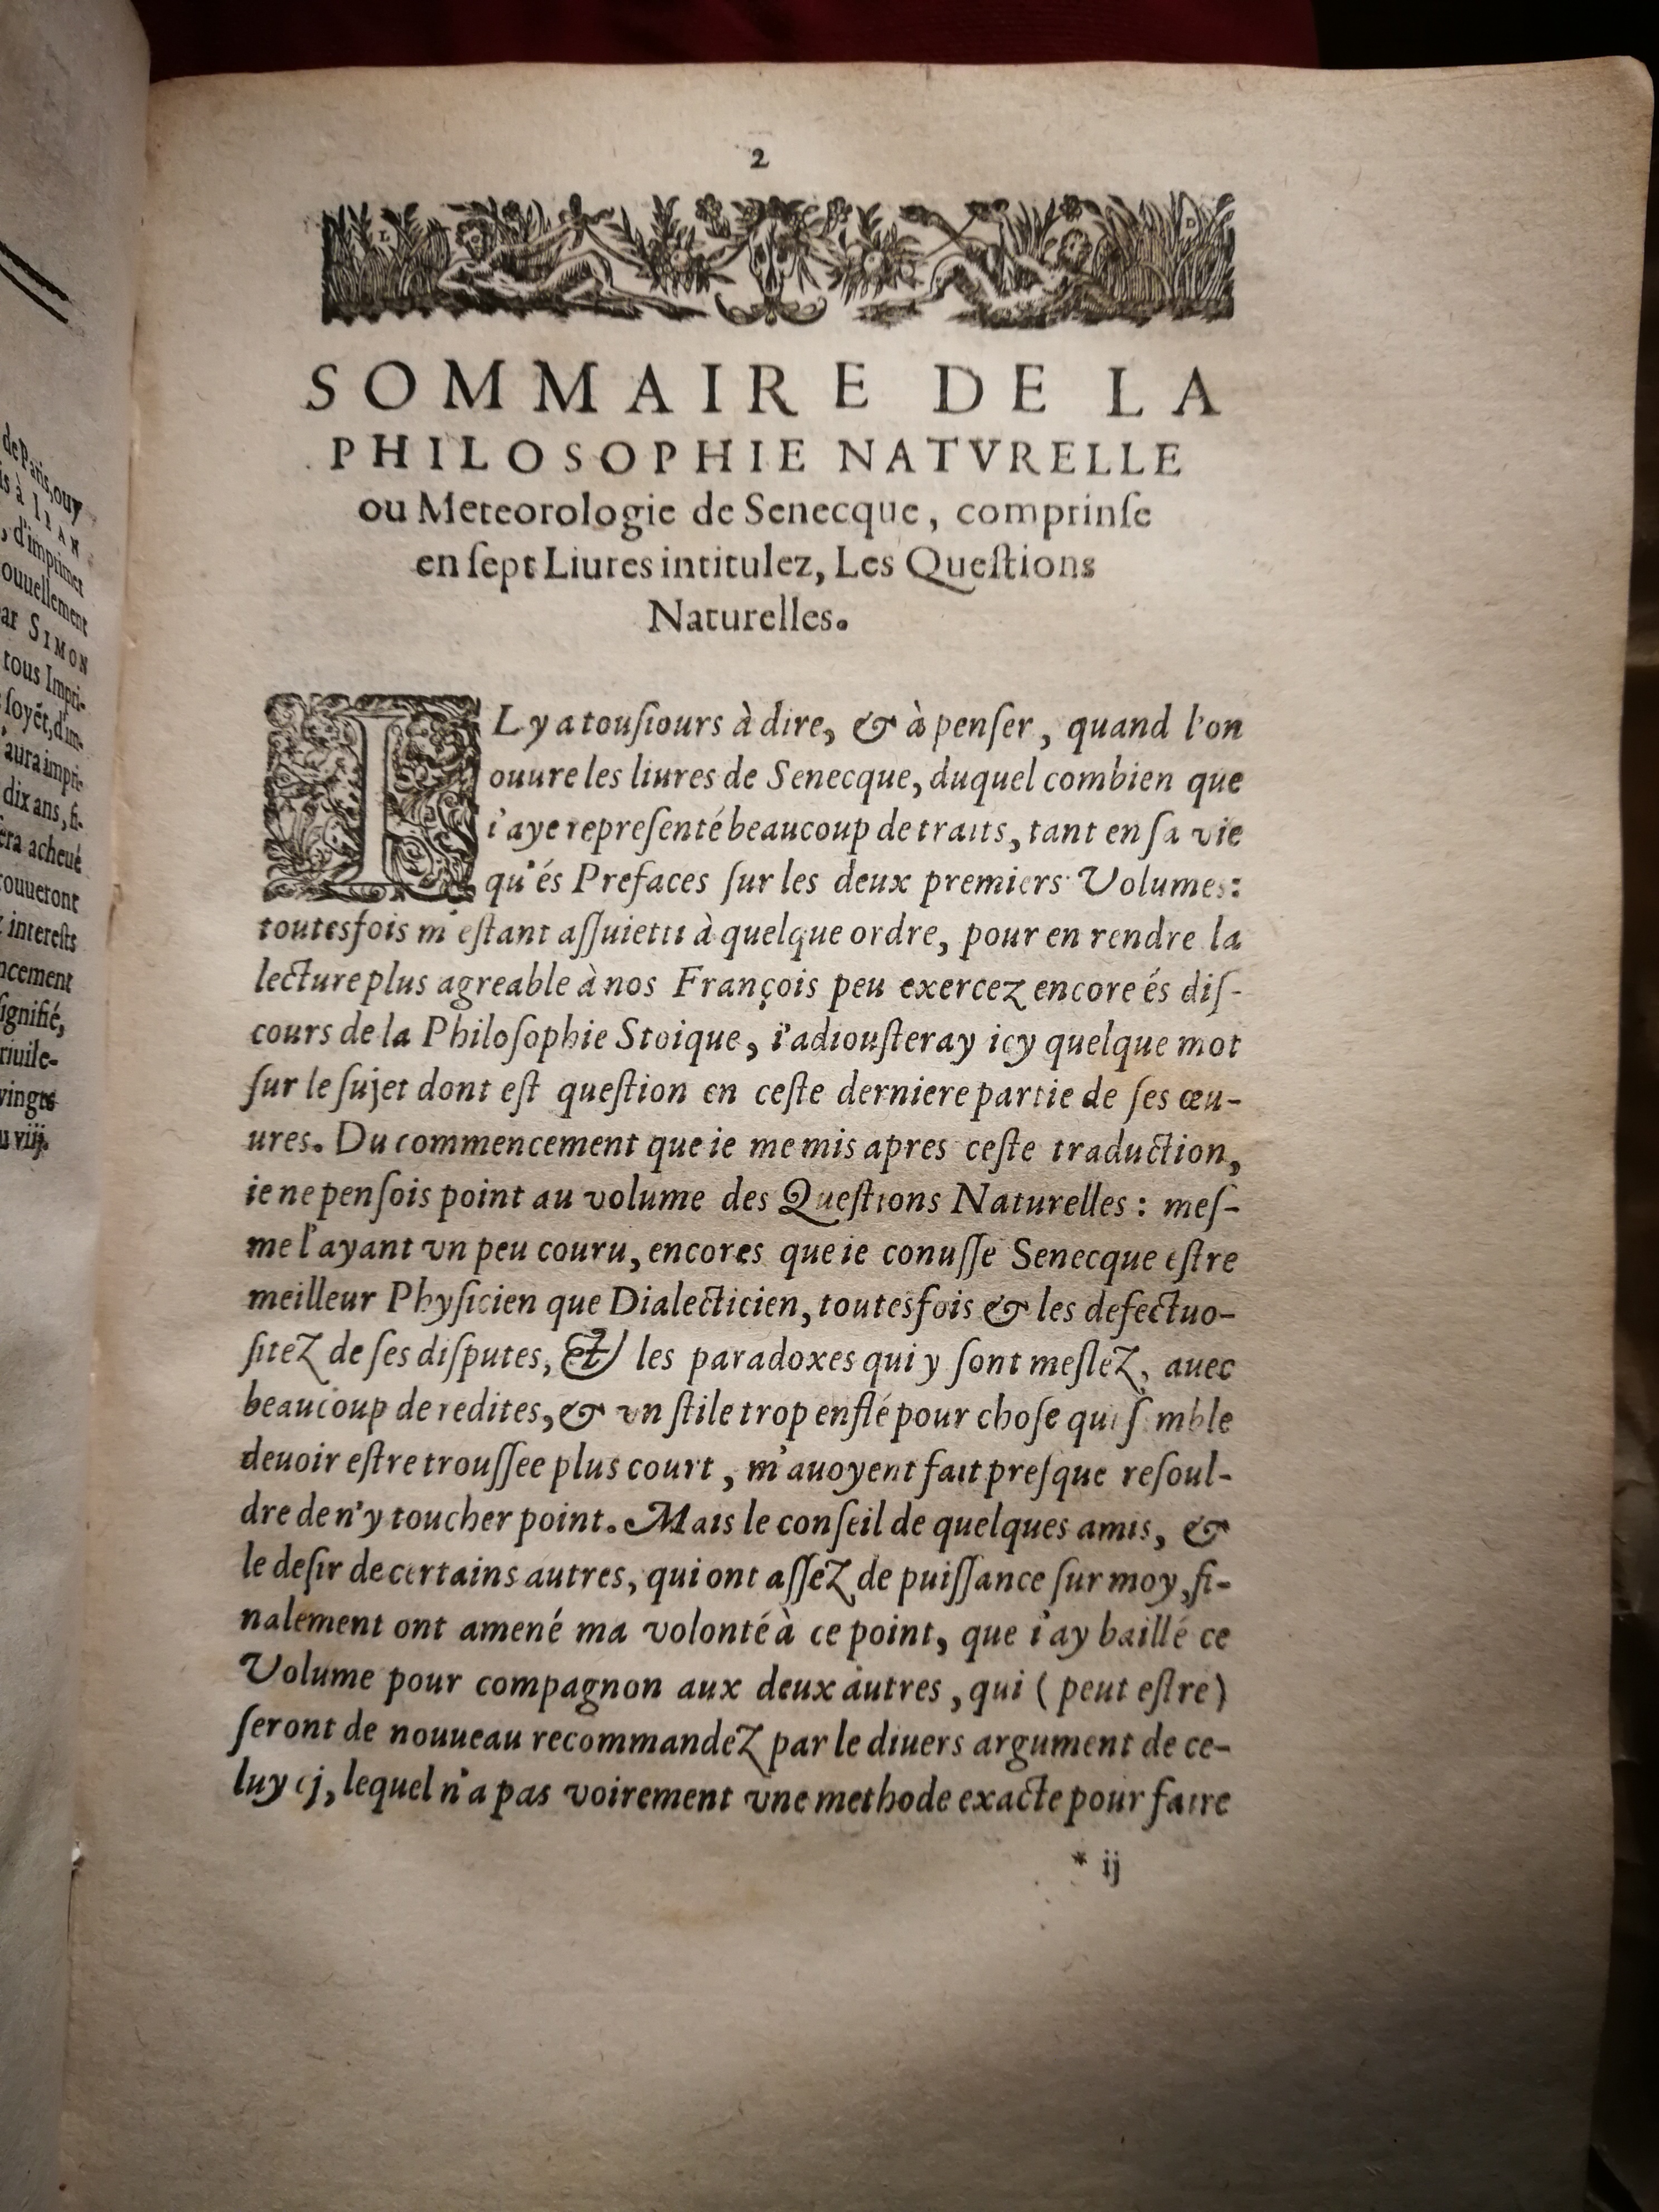 de Paris, ouy
is à IEAN
, d'imprimer
ouuellement
ar SIMON
tous Impri-
soyẽt, d'im-
aura impri-
dix ans, fi-
era acheué
rouueront
interests
ncement
signifié,
riuile-
vingts
u viij.
2
SOMMAIRE DE LA
PHILOSOPHIE NATVRELLE
ou Meteorologie de Senecque, comprinſe
en ſept Liures intitulez, Les Queſtions
Naturelles.
IL y a touſiours à dire, & à penſer, quand l'on
ouure les liures de Senecque, duquel combien que
i'aye repreſenté beaucoup de traits, tant en ſa vie
qu'és Prefaces ſur les deux premiers Volumes:
toutesfois m'eſtant aſſuietti à quelque ordre, pour en rendre la
lecture plus agreable à nos François peu exercez encore és diſ-
cours de la Philoſophie Stoique, i'adiouſteray icy quelque mot
ſur le ſujet dont eſt queſtion en ceſte derniere partie de ſes œu-
ures. Du commencement que ie me mis apres ceſte traduction,
ie ne penſois point au volume des Queſtions Naturelles: meſ-
me l'ayant vn peu couru, encores que ie conuſſe Senecque eſtre
meilleur Phyſicien que Dialecticien, toutesfois & les defectuo-
ſitez de ſes diſputes, & les paradoxes qui y ſont meſlez, auec
beaucoup de redites, & vn ſtile trop enflé pour choſe qui ſ mble
deuoir eſtre trouſſee plus court, m'auoyent fait preſque reſoul-
dre de n'y toucher point. Mais le conſeil de quelques amis, &
le deſir de certains autres, qui ont aſſez de puiſſance ſur moy, fi-
nalement ont amené ma volonté à ce point, que i'ay baillé ce
Volume pour compagnon aux deux autres, qui (peut eſtre)
ſeront de nouueau recommandez par le diuers argument de ce-
luy cj, lequel n'a pas voirement vne methode exacte pour faire
* ij